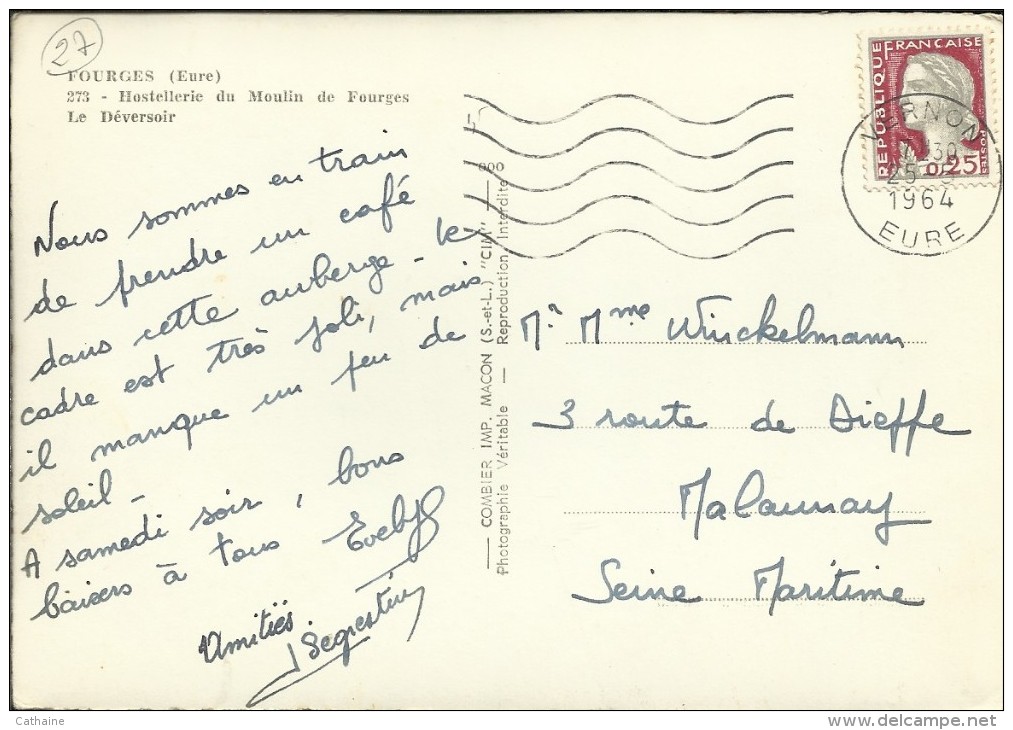 27
FOURGES (Eure)
273 - Hostellerie du Moulin de Fourges
Le Déversoir
Nous sommes en train
de prendre un café
dans cette auberge - le
cadre est très joli, mais
il manque un peu de
soleil -
A samedi soir, bons
baisers à tous
Amitiés.
COMBIER IMP. MACON (S.-et-L.) "CIM"
Photographie Véritable — Reproduction Interdite
REPUBLIQUE FRANCAISE
POSTES
0,25
VERNON
25
1964
EURE
Mr Mme Winckelmann
3 route de Dieppe
Malaunay
Seine Maritime
Cathaine
www.delcampe.net